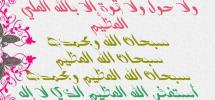 ولا حول ولا قوة إلا بالله العلي
العظيم
سبحان الله وبحمده
سبحان الله العظيم
سبحان الله العظيم وبحمده
أستغفر الله العظيم الذي لا إله